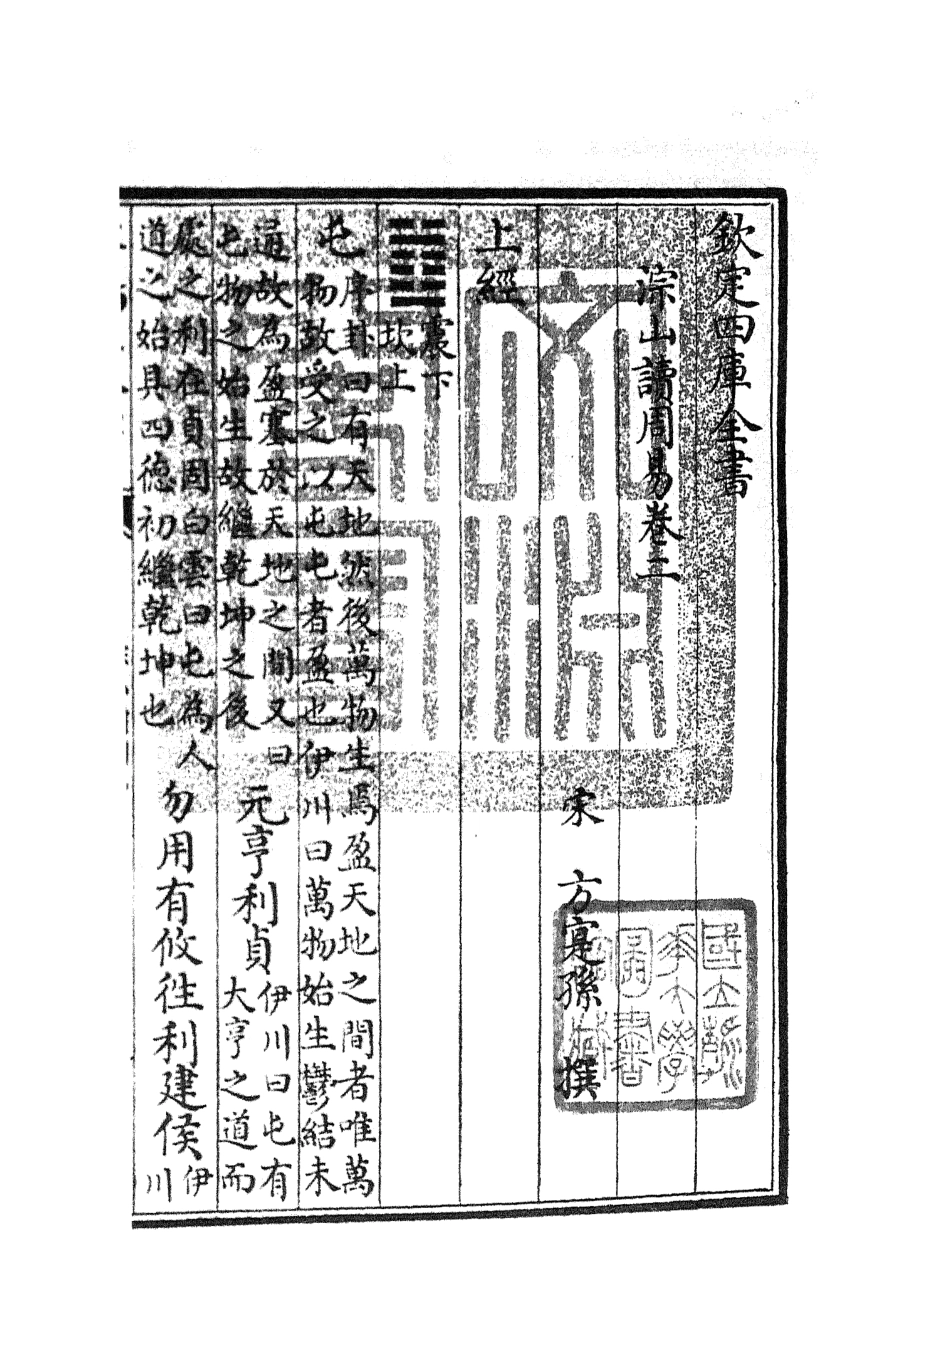 欽定四庫全書
淙山讀周易卷三
宋 方寔孫 撰
上經
震下
坎上
屯
序卦曰有天地然後萬物生焉盈天地之間者唯萬
物故受之以屯屯者盈也伊川曰萬物始生鬱結未
通故為盈塞於天地之間又曰
屯物之始生故繼乾坤之後
元亨利貞
伊川曰屯有
大亨之道而
處之利在貞固白雲曰屯為人
道之始具四德初繼乾坤也
勿用有攸往利建侯
伊
川
文淵閣寶